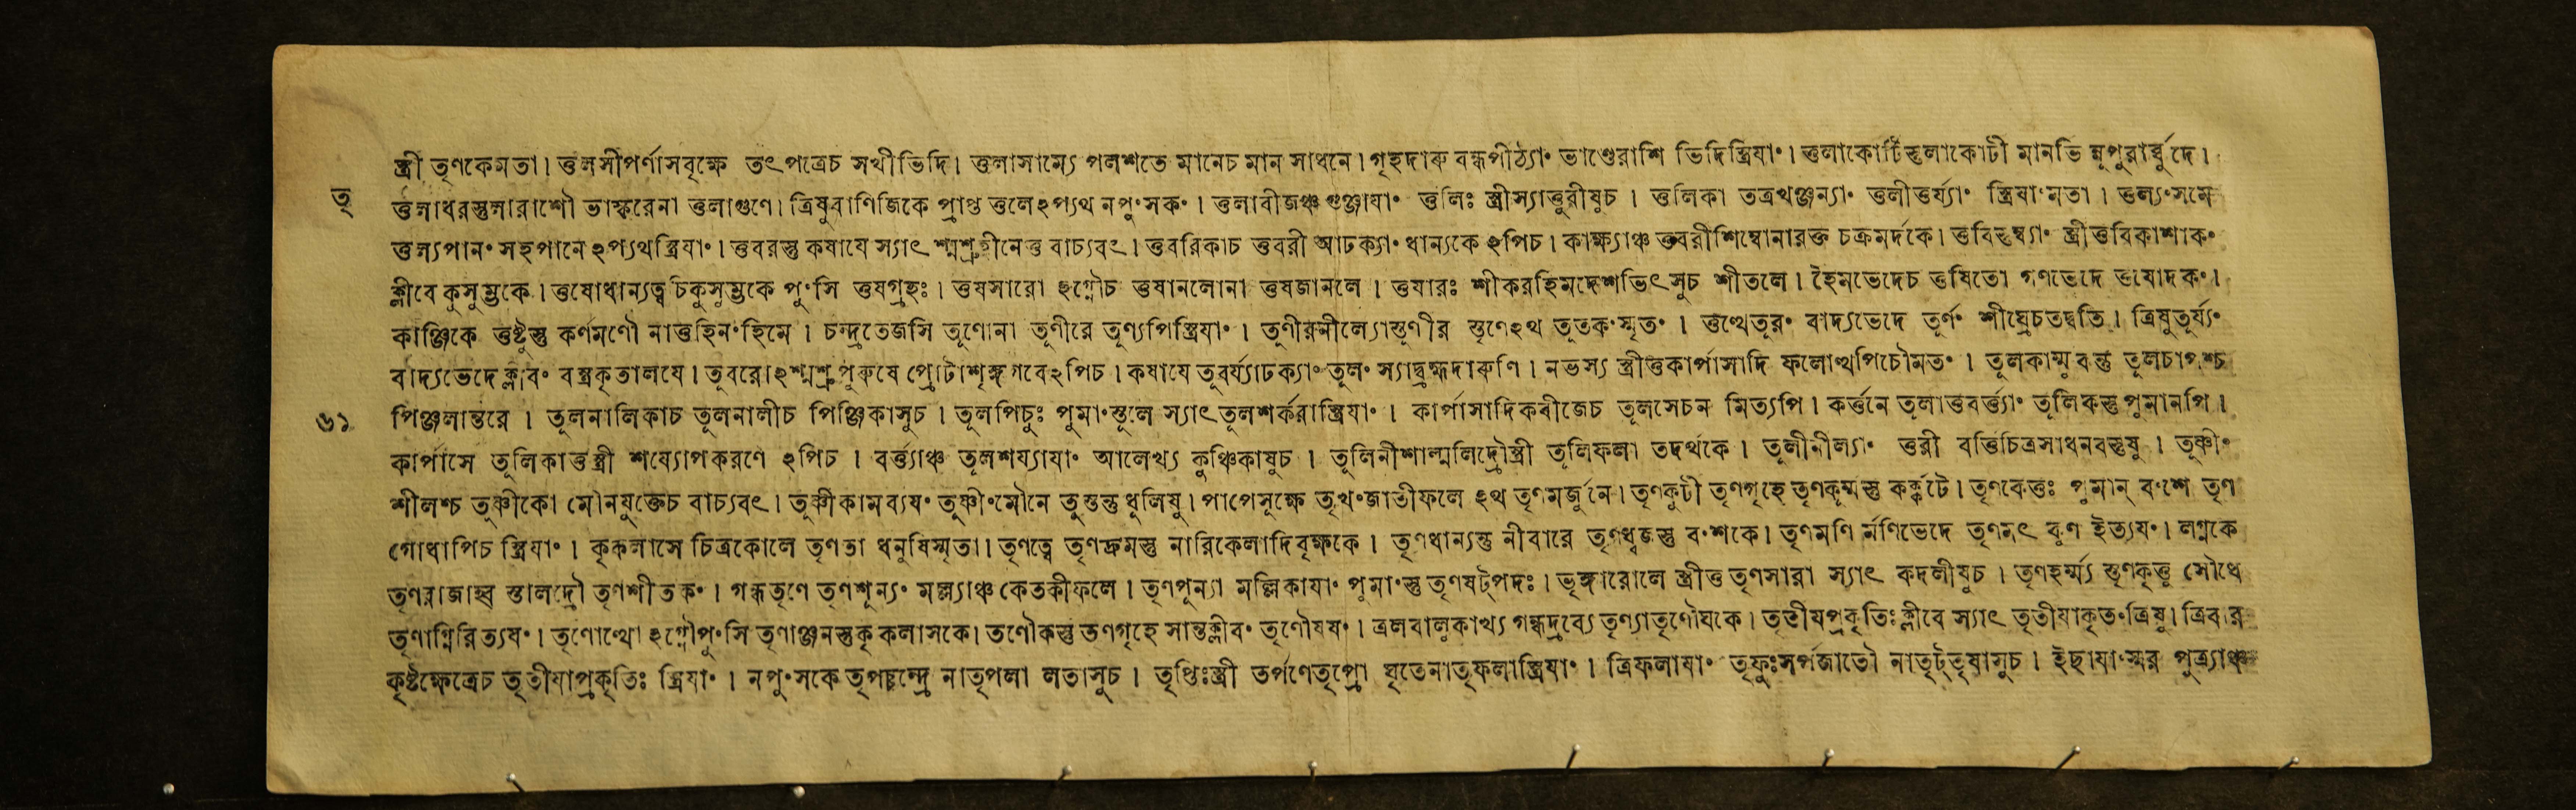 স্ত্রী তৃণকেমতা। ত্তলসীপর্ণাসবৃক্ষে তৎ পত্রেচ সখীভিদি। ত্তলাসাম্যে পলশতে মানেচ মান সাধনে। গৃহদারু বন্ধপীঠ্যাং ভাণ্ডেরাশি ভিদিস্ত্রিযাং। ত্তলাকোটিস্তুলাকোটী মানভি ন্নূপুরার্ব্বুদে।
তৃ
র্ত্তলাধরস্তুলারাশৌ ভাস্করেনা ত্তলাগুণে। ত্রিষুবাণিজিকে প্রাপ্ত ত্তলেঽপ্যথ নপুংসকং। ত্তলাবীজঞ্চ গুঞ্জাযাং ত্তলিঃ স্ত্রীস্যাত্তুরীষুচ। ত্তলিকা তত্রখঞ্জন্যাং ত্তলীত্তর্য্যাং স্ত্রিযাংমতা। ত্তল্যংসমে
ত্তল্যপানং সহপানেঽপ্যথস্ত্রিযাং। ত্তবরস্তু কষাযে স্যাৎ শ্মশ্রুহীনেত্ত বাচ্যবৎ। ত্তবরিকাচ ত্তবরী আঢক্যাং ধান্যকেঽপিচ। কাক্ষ্যাঞ্চ ত্তবরীশিম্বোনারক্ত চক্রমর্দকে। ত্তবিস্তুম্ব্যাং স্ত্রীত্তবিকাশাকং
ক্লীবে কুসুম্ভকে। ত্তষোধান্যত্বচিকুসুম্ভকে পুংসি ত্তষগ্রহঃ। ত্তষসারো ঽগ্নৌচ ত্তষানলোনা ত্তষজানলে। ত্তষারঃ শীকরহিমদেশভিৎসুচ শীতলে। হৈমভেদেচ ত্তষিতো গণভেদে ত্তষোদকং।
কাঞ্জিকে ত্তষ্টুস্তু কর্ণমণৌ নাত্তহিনংহিমে। চন্দ্রতেজসি তূণোনা তূণীরে তূণ্যপিস্ত্রিযাং। তূণীরনীল্যোস্তূণীর স্তূণেঽথ তূতকংস্মৃতং। ত্তত্থেতূরং বাদ্যভেদে তূর্ণং শীঘ্রেচতদ্বতি। ত্রিষুতূর্য্যং
বাদ্যভেদেক্লীবং বস্ত্রকৃতালযে। তূবরোঽশ্মশ্রুপুরুষে প্রোটাশৃঙ্গগবেঽপিচ। কষাযে তূবর্য্যাঢক্যাং তূলং স্যাদ্ব্রহ্মদারুণি। নভস্য স্ত্রীত্তকার্পাসাদি ফলোত্থপিচৌমতং। তূলকাম্মুবন্ত্ত তূলচাপশ্চ
৬১
পিঞ্জলান্তরে। তূলনালিকাচ তূলনালীচ পিঞ্জিকাসুচ। তূলপিচুঃ পুমাংস্তূলে স্যাৎতূলশর্করাস্ত্রিযাং। কার্পাসাদিকবীজেচ তূলসেচন মিত্যপি। কর্ত্তনে তূলাত্তবর্ত্ত্যাং তূলিকস্তু পুমানপি।
কার্পাসে তূলিকাত্তস্ত্রী শয্যোপকরণে ঽপিচ। বর্ত্ত্যাঞ্চ তূলশয্যাযাং আলেখ্য কুঞ্চিকাষুচ। তূলিনীশাল্মলিদ্রৌস্ত্রী তূলিফলা তদর্থকে। তূলীনীল্যাং ত্তরী বর্ত্তিচিত্রসাধনবস্তুষু। তূষ্ণীং
শীলশ্চ তূষ্ণীকো মৌনযুক্তেচ বাচ্যবৎ। তূষ্ণীকামব্যযং তূষ্ণীংমৌনে তূস্তন্ত্ত ধূলিষু। পাপেসূক্ষে তৃখংজাতীফলে ঽথ তৃণমর্জুনে। তৃণকুটী তৃণগৃহে তৃণকূর্ম্মস্তু কর্ক্কটে। তৃণকেত্তঃ পুমান্ বংশে তৃণ
গোধাপিচ স্ত্রিযাং। কৃকলাসে চিত্রকোলে তৃণতা ধনুষিস্মৃতা। তৃণত্বে তৃণদ্রুমস্তু নারিকেলাদিবৃক্ষকে। তৃণধান্যন্ত্ত নীবারে তৃণধ্বজস্তু বংশকে। তৃণমণি র্মণিভেদে তৃণমৎ কুণ ইত্যযং। লগ্নকে
তৃণরাজাহ্ব স্তালদ্রৌ তৃণশীতকং। গন্ধতৃণে তৃণশূন্যং মল্ল্যাঞ্চ কেতকীফলে। তৃণপূন্যা মল্লিকাযাং পুমাংস্তু তৃণষট্পদঃ। ভৃঙ্গারোলে স্ত্রীত্ত তৃণসারা স্যাৎ কদলীষুচ। তৃণহর্ম্ম্য স্তৃণকৃত্ত সৌধে
তৃণাগ্নিরিত্যযং। তৃণোত্থো ঽগ্নৌপুংসি তৃণাঞ্জনস্তুকৃকলাসকে। তণৌকস্তু তণগৃহে সান্তক্লীবং তৃণৌষধং। ত্রলবালুকাখ্য গন্ধদ্রব্যে তৃণ্যাতৃণৌঘকে। তৃতীযপ্রকৃতিঃক্লীবে স্যাৎ তৃতীযাকৃতংত্রিষু। ত্রিবার
কৃষ্টক্ষেত্রেচ তৃতীযাপ্রকৃতিঃ স্ত্রিযাং। নপুংসকে তৃপচ্চন্দ্রে নাতৃপলা লতাসুচ। তৃপ্তিঃস্ত্রী তর্পণেতৃপ্রো ঘৃতেনাতৃফলাস্ত্রিযাং। ত্রিফলাযাং তৃফুঃসর্পজাতৌ নাতৃট্তৃষাসুচ। ইচ্ছাযাংস্মর পুত্র্যাঞ্চ